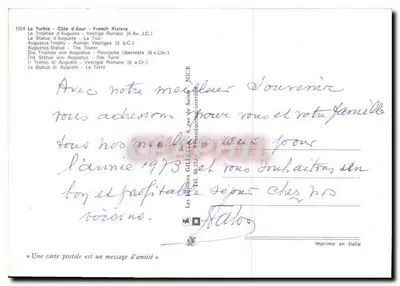 1054 La Turbie - Côte d'Azur - French Riviera
Le Trophée d'Auguste - Vestige Romain (6 Av. J.C.)
La Statue d'Auguste - La Tour
Augustus Trophy - Roman Vestiges (6 b.C.)
Augustus Statue - The Tower
Die Trophée von Augustus - Römische
The Statue von Augustus - Der Turm
Il Trofeo di Augusto - Vestigia Romane (6 a.Cr.)
La Statua di Augusto - La Torre
Avec notre meilleur souvenir
vous adressons pour vous et votre famille
tous nos meilleurs vœux pour
l'année 1973 et vous souhaitons un
bon et profitable séjour chez nos
voisins.
NICE
Imprimé en Italie
« Une carte postale est un message d'amitié »